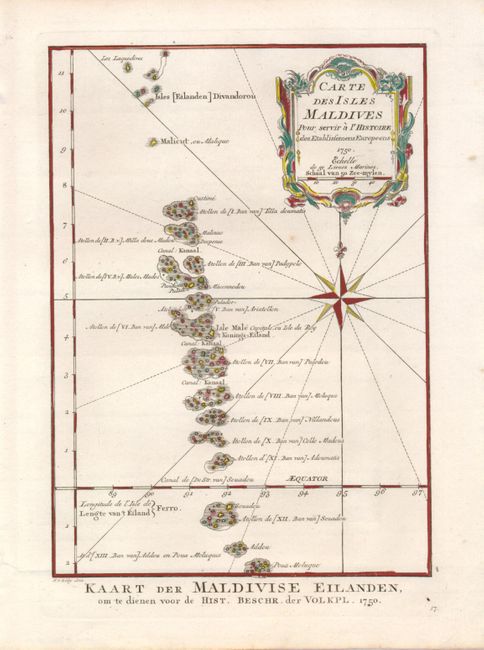 CARTE
DES ISLES
MALDIVES
Pour servir à l'HISTOIRE
des Etablissemens Européens
1750.
Echelle
de 50 Lieues Marines.
Schaal van 50 Zee-mylen.
10 20 30 40
11
10
9
8
7
6
5
4
3
2
1
1
2
Les Laquedives
Isles [Eilanden] Divandorou
Malicut, ou Maluque
Oustimé
Atollen de [I. Ban van] Tilla doumatis
Malinus
Atollen de [II. B.v.] Milla doue Madou
Canal: Kanaal.
Atollen de [III Ban van] Padypolo
Atollen de [IV. B.v.] Malos Madou
Macennedou
Pulador
[V. Ban van] Ariatollon
Atollen de [VI. Ban van] Male
Isle Malé Capitale, ou Isle du Roy
't Konings-Eiland
Canal: Kanaal
Atollen de [VII. Ban van] Poulisdou
Canal: Kanaal
Atollen de [VIII. Ban van] Moluque
Atollen de [IX. Ban van] Nillandous
Atollen de [X. Ban van] Collo Madous
Atollen d' [XI. Ban van] Adoumatis
Canal de [De Str. van] Souadou
ÆQUATOR
89 90 91 92 93 94 95 96 97
Longitude de l'Isle de
Lengte van't Eiland
Ferro.
Souadou
Atollen de [XII. Ban van] Souadou
Addou
At. d' [XIII. Ban van] Addou en Poua Moluques
Poua Moluque
KAART DER MALDIVISE EILANDEN,
om te dienen voor de HIST. BESCHR. der VOLKPL. 1750.
17.